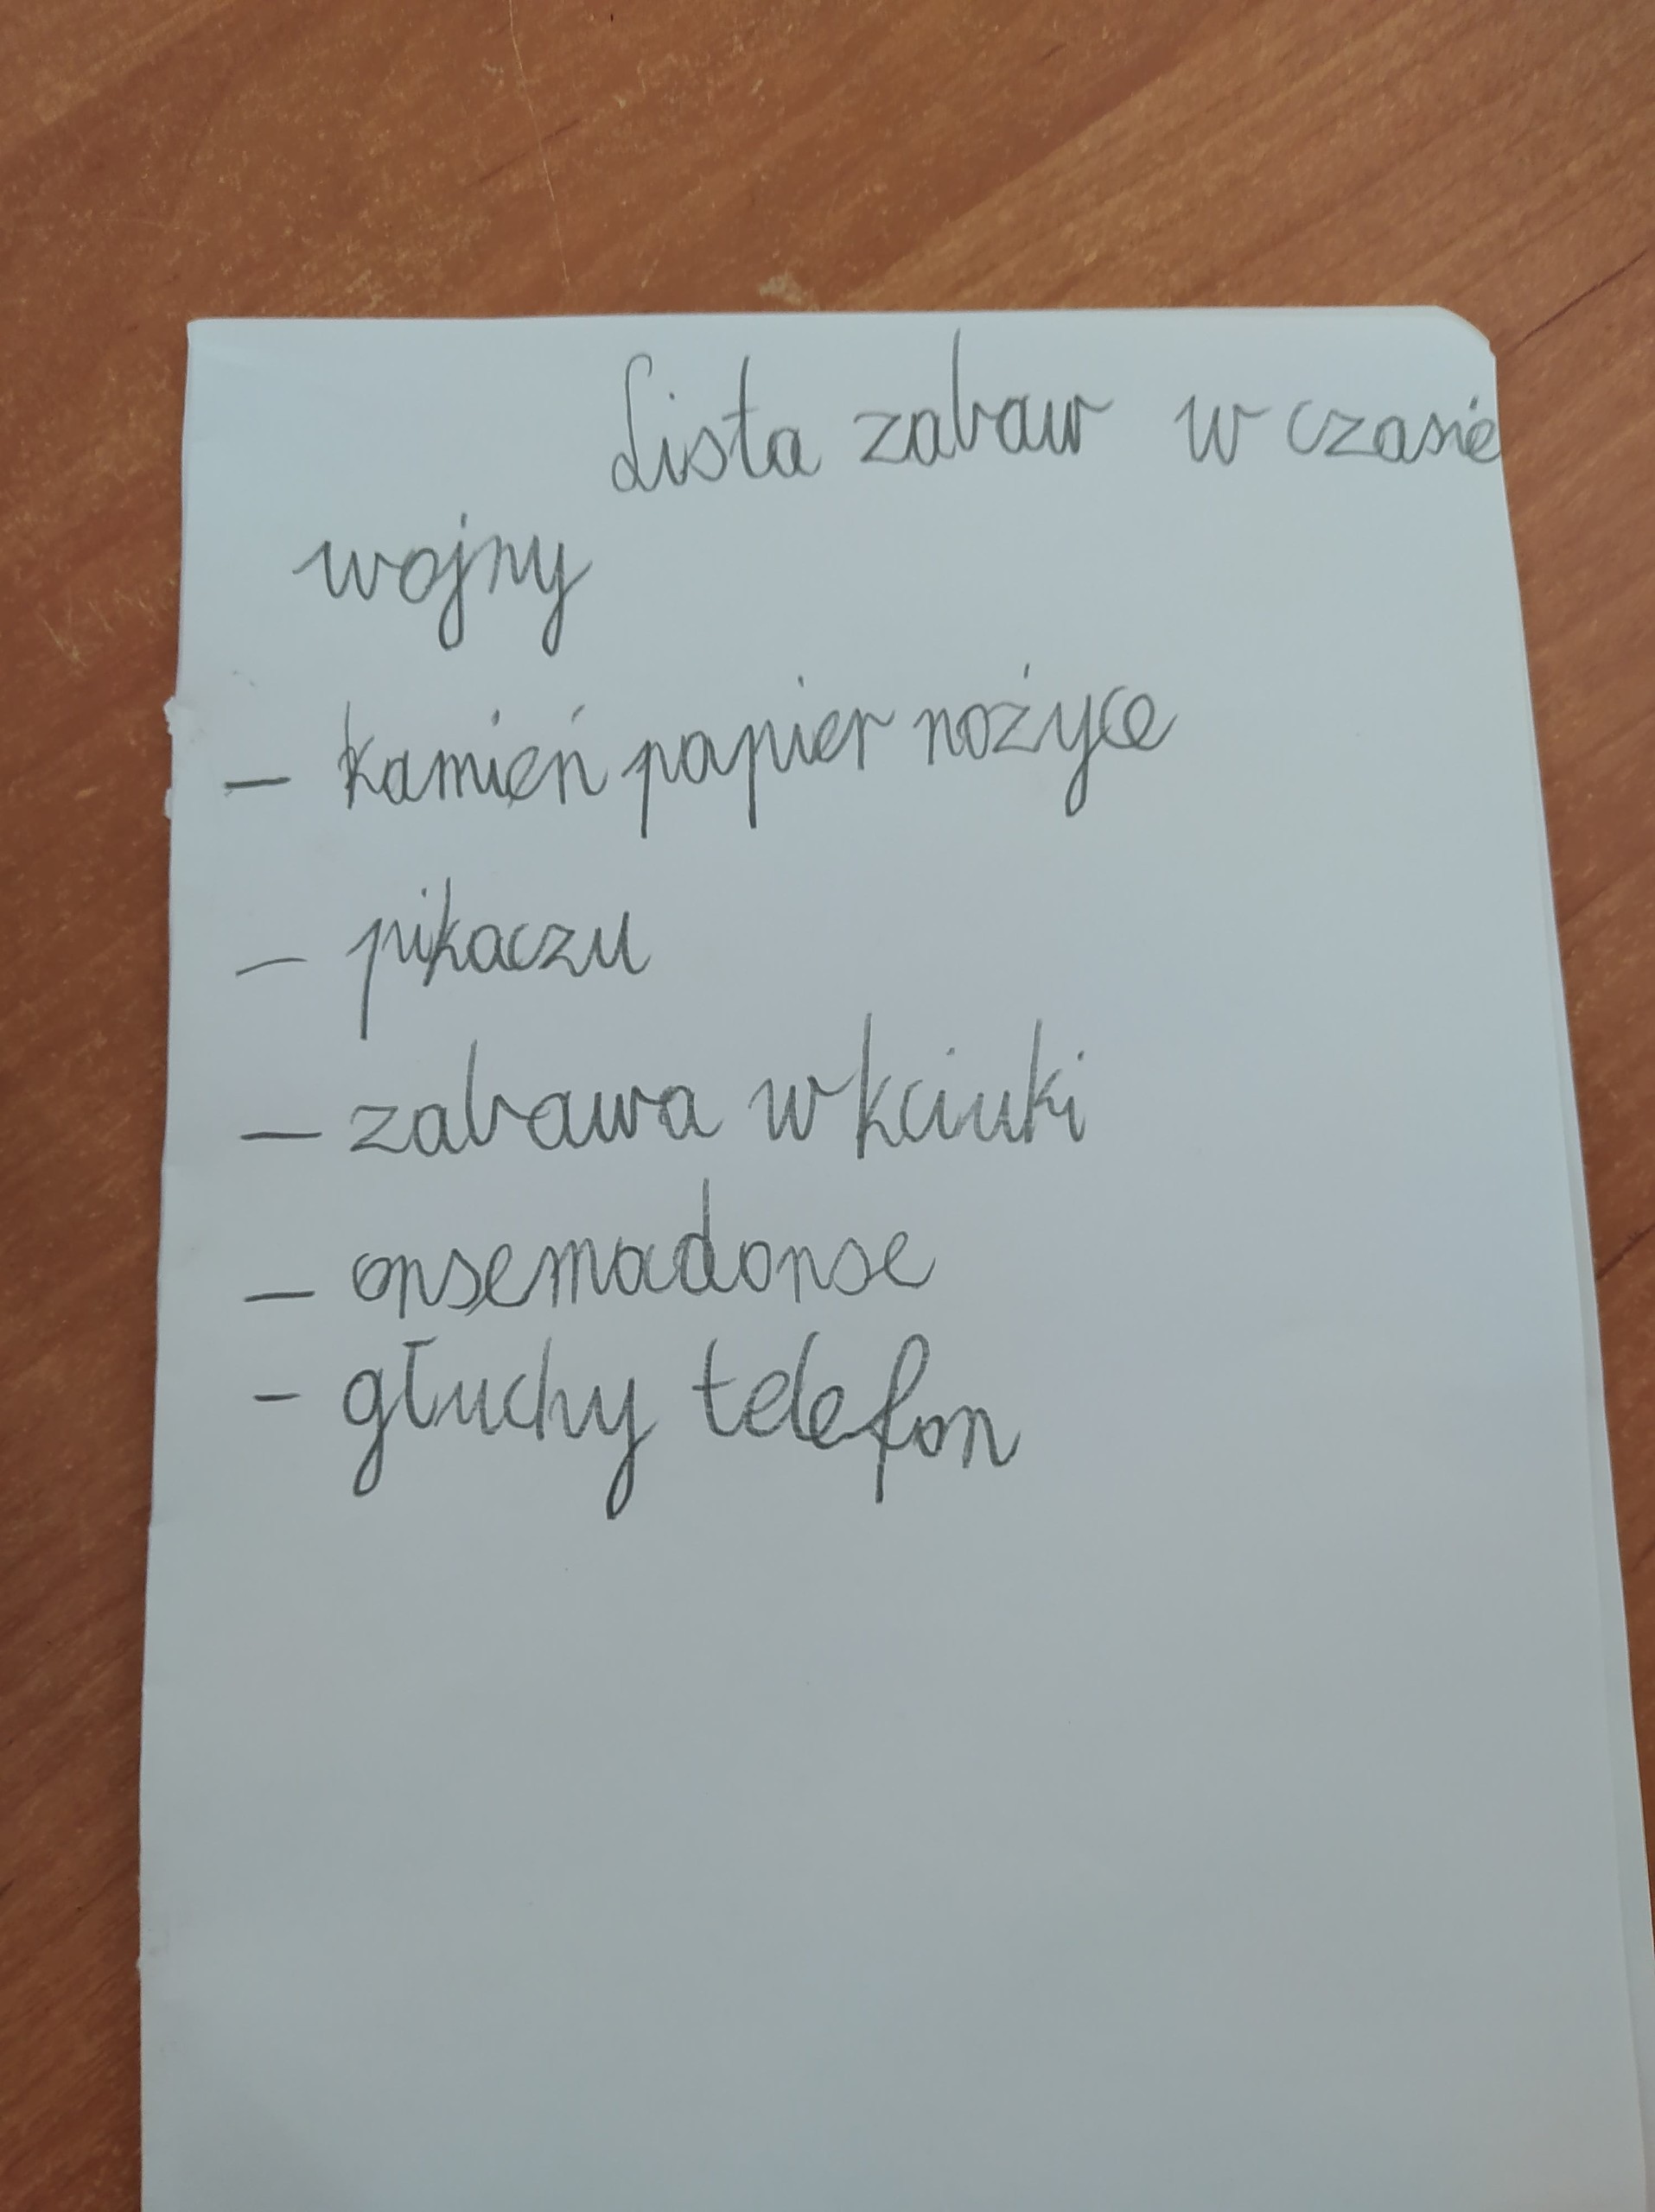 Lista zabaw w czasie
wojny
- kamień papier nożyce
- pikaczu
- zabawa w kciuki
- onsemadonse
- głuchy telefon